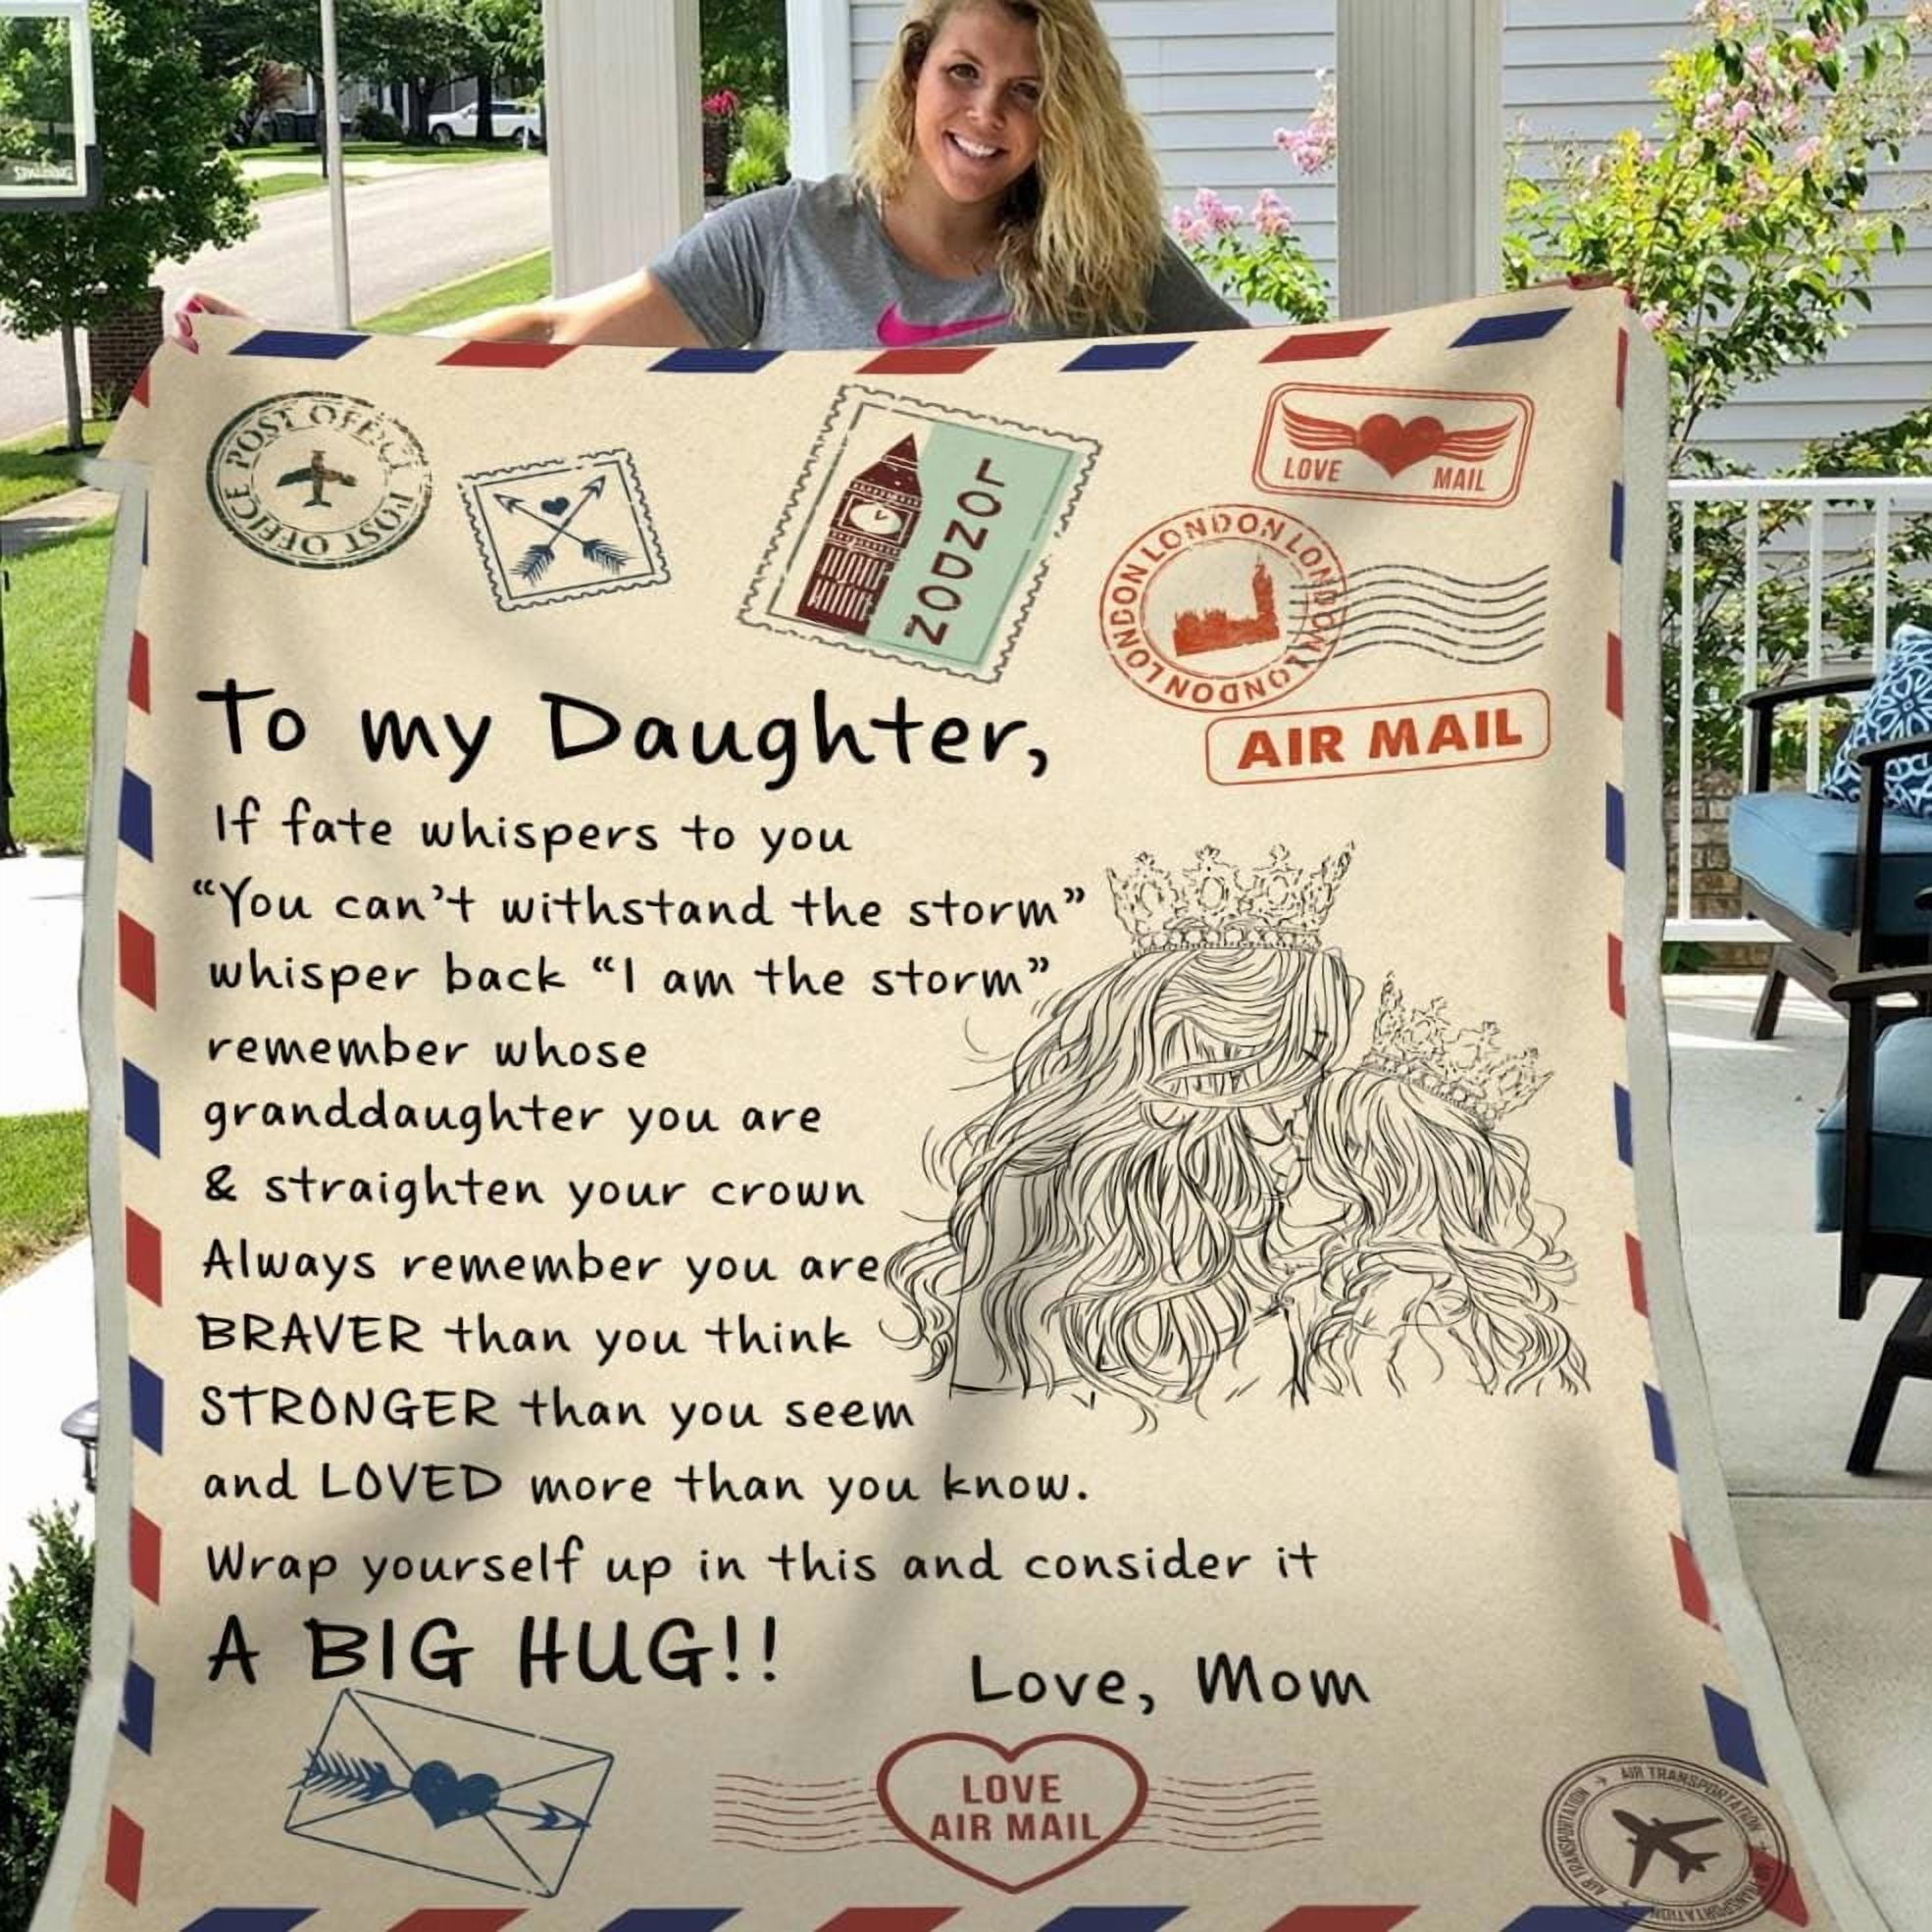 SPALDING
POST OFFICE POST OFFICE
LONDON
LOVE MAIL
LONDON LONDON LONDON LONDON LONDON
AIR MAIL
To my Daughter,
If fate whispers to you
“You can’t withstand the storm”
whisper back “I am the storm”
remember whose
granddaughter you are
& straighten your crown
Always remember you are
BRAVER than you think
STRONGER than you seem
and LOVED more than you know.
Wrap yourself up in this and consider it
A BIG HUG!!
Love, Mom
LOVE
AIR MAIL
AIR TRANSPORTATION AIR TRANSPORTATION AIR TRANSPORTATION